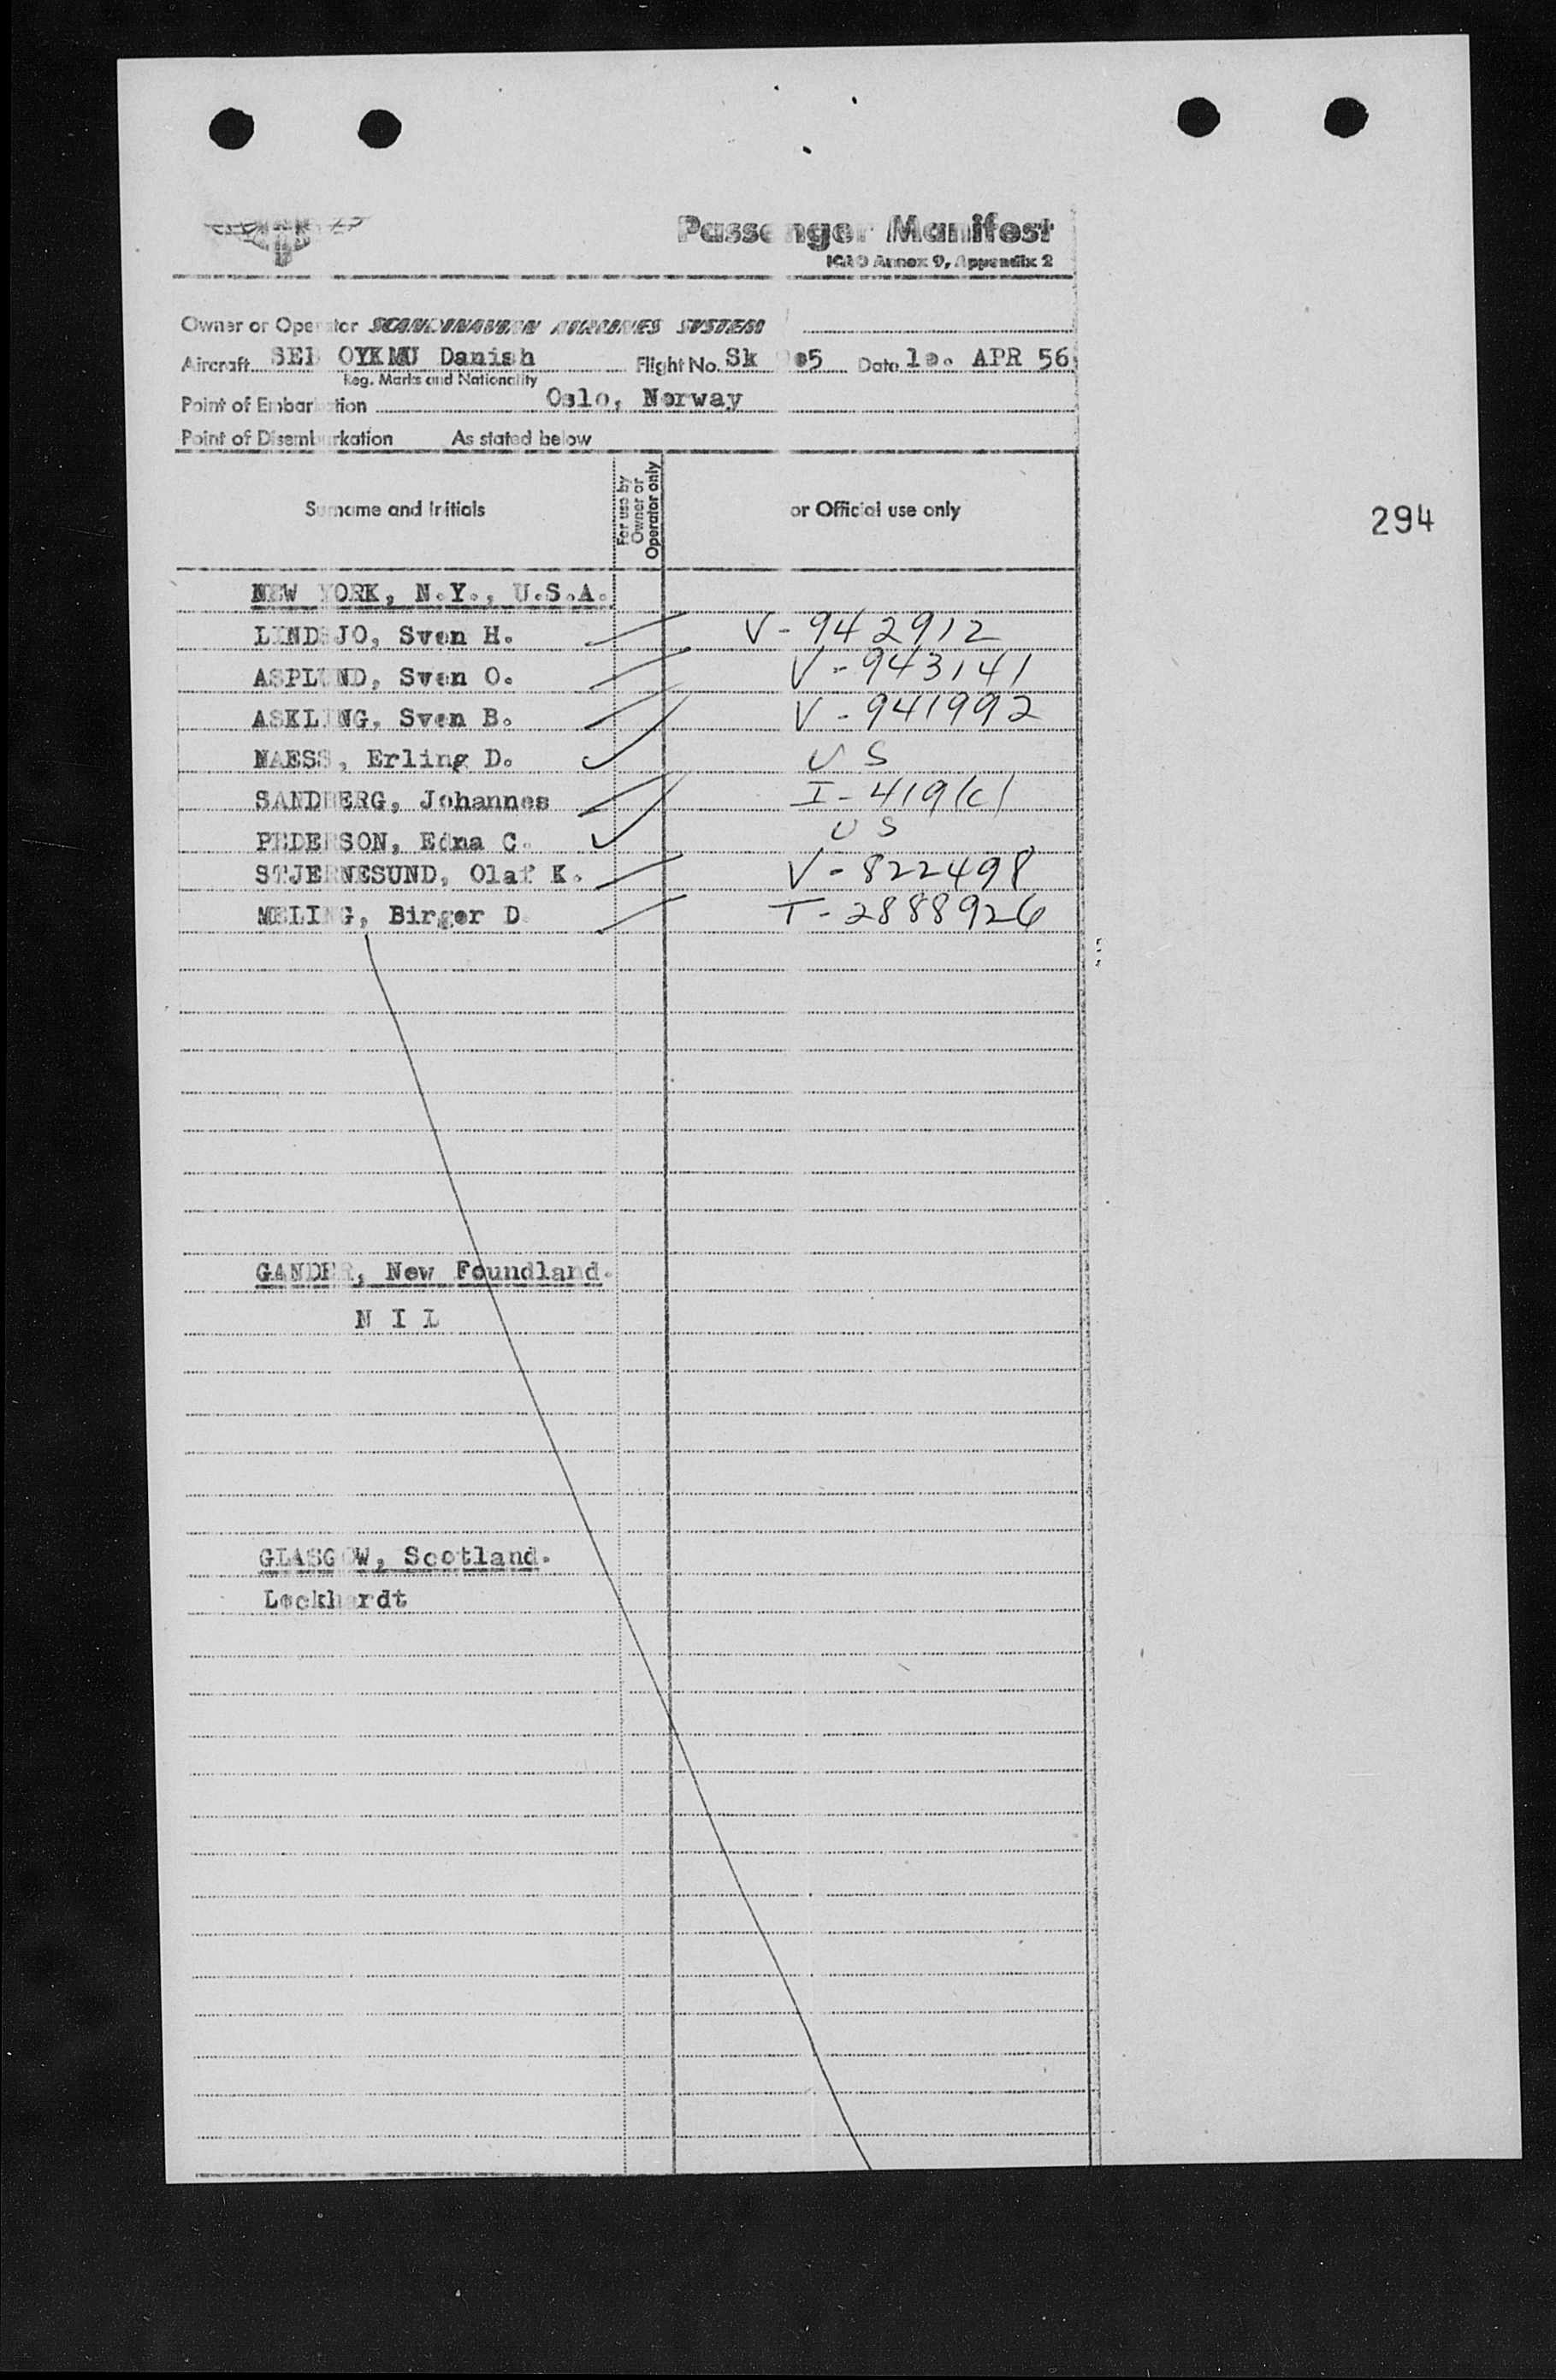 Passenger Manifest
ICAO Annex 9, Appendix 2
Owner or Operator SCANDINAVIAN AIRLINES SYSTEM
Aircraft OYKMU Danish Flight No. Sk Date 1o. APR 56
Reg. Marks and Nationality
Point of Embarkation Oslo, Norway
Point of Disembarkation As stated below
Surname and Initials
For use by Owner or Operator only
or Official use only
294
NEW YORK, N.Y., U.S.A.
LINDSJO, Sven H. V-942912
ASPLUND, Sven O. V-943141
ASKLING, Sven B. V-941992
NAESS, Erling D. US
SANDBERG, Johannes I-419(c)
PEDERSON, Edna C. US
STJERNESUND, Olaf K. V-822498
MELING, Birger D T-2888926
GANDER, New Foundland.
N I L
GLASGOW, Scotland.
Lockhardt